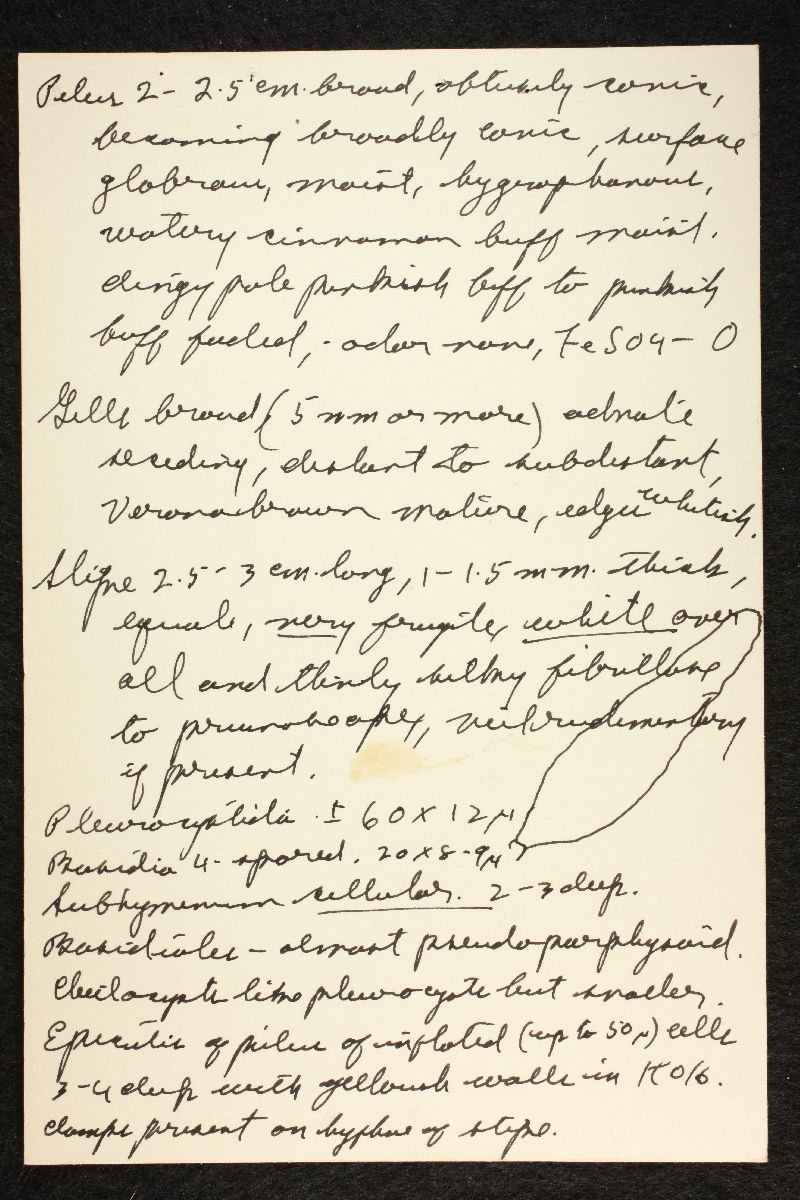 Pileus 2 - 2.5 cm. broad, obtusely conic,
becoming broadly conic, surface
glabrous, moist, hygrophanous,
watery cinnamon buff moist.
dingy pale pinkish buff to pinkish
buff faded, - odor none, FeSO4 - O
Gills broad (5 mm or more) adnate
seceding, distant to subdistant,
Verona brown mature, edges whitish.
Stipe 2.5 - 3 cm. long, 1 - 1.5 mm. thick,
equal, very fragile, white over
all and thinly silky fibrillose
to pruinose apex, veil rudimentary
if present.
Pleurocystidia ± 60 x 12 µ
Basidia 4-spored. 20 x 8-9 µ
Subhymenium cellular. 2-3 deep.
Basidioles - almost pseudoparphysoid.
Cheilocysts like pleurocysts but smaller.
Epicutis of pileus of inflated (up to 50 µ) cells
3-4 deep with yellowish walls in KOH.
clamps present on hyphae of stipe.